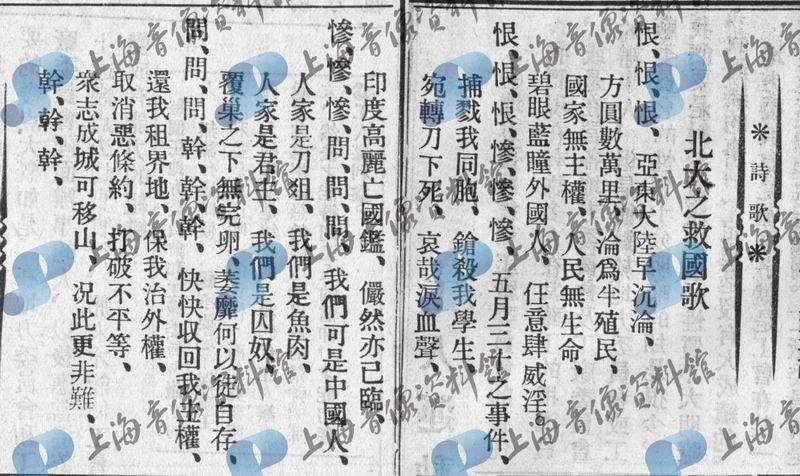 ＊詩歌＊
北大之救國歌
恨、恨、恨、亞東大陸早沉淪、
方圓數萬里、淪爲半殖民、
國家無主權、人民無生命、
碧眼藍瞳外國人、任意肆威淫。
恨、恨、恨、慘、慘、慘、五月三十之事件、
捕戮我同胞、鎗殺我學生、
宛轉刀下死、哀哉淚血聲、
印度高麗亡國鑑、儼然亦已臨、
慘、慘、慘、問、問、問、我們可是中國人、
人家是刀俎、我們是魚肉、
人家是君主、我們是囚奴、
覆巢之下無完卵、萎靡何以徒自存、
問、問、問、幹、幹、幹、快快収回我主權、
還我租界地、保我治外權、
取消惡條約、打破不平等、
衆志成城可移山、况此更非難、
幹、幹、幹、
上海音像資料館